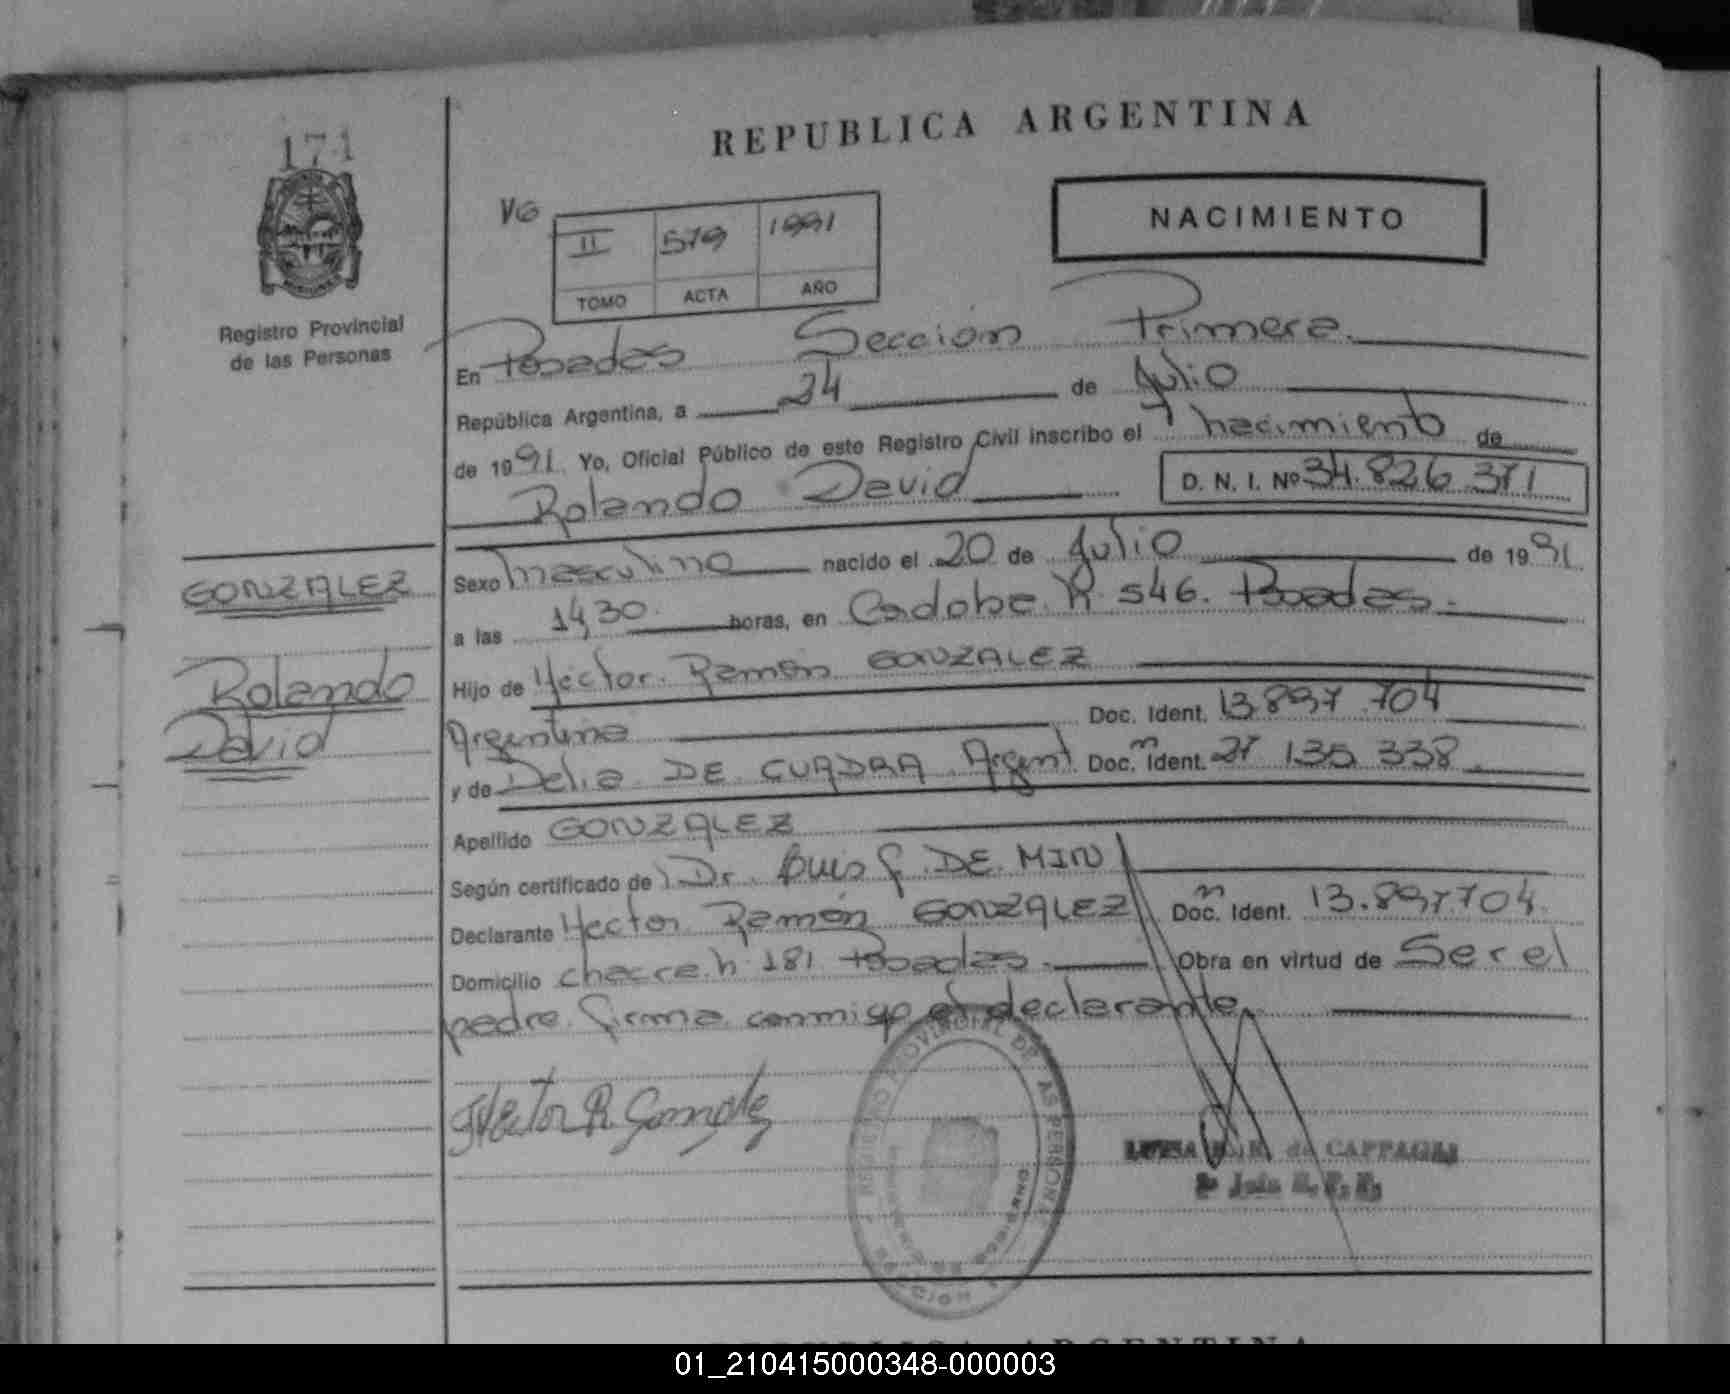 171
REPUBLICA ARGENTINA
VG
II 579 1991
TOMO ACTA AÑO
NACIMIENTO
Registro Provincial
de las Personas
En Posadas Sección Primera
República Argentina, a 24 de Julio
de 1991. Yo, Oficial Público de este Registro Civil inscribo el nacimiento de
Rolando David D. N. I. Nº 34.826.371
GONZALEZ
Rolando
David
Sexo masculino nacido el 20 de Julio de 1991.
a las 14,30. horas, en Cordoba N. 546. Posadas.
Hijo de Héctor Ramón GONZALEZ
Argentino Doc. Ident. 13.897.704
y de Delia DE CUADRA Argent Doc. Ident. 21 135 338
Apellido GONZALEZ
Según certificado de Dr. Luis G. DE MIN
Declarante Hector Ramón GONZALEZ Doc. Ident. 13.897.704.
Domicilio chacra n. 181 Posadas. Obra en virtud de Ser el
padre. firma conmigo el declarante
Hector R. Gonzalez
REGISTRO PROVINCIAL DE LAS PERSONAS
de CAPPAGLI
01_210415000348-000003